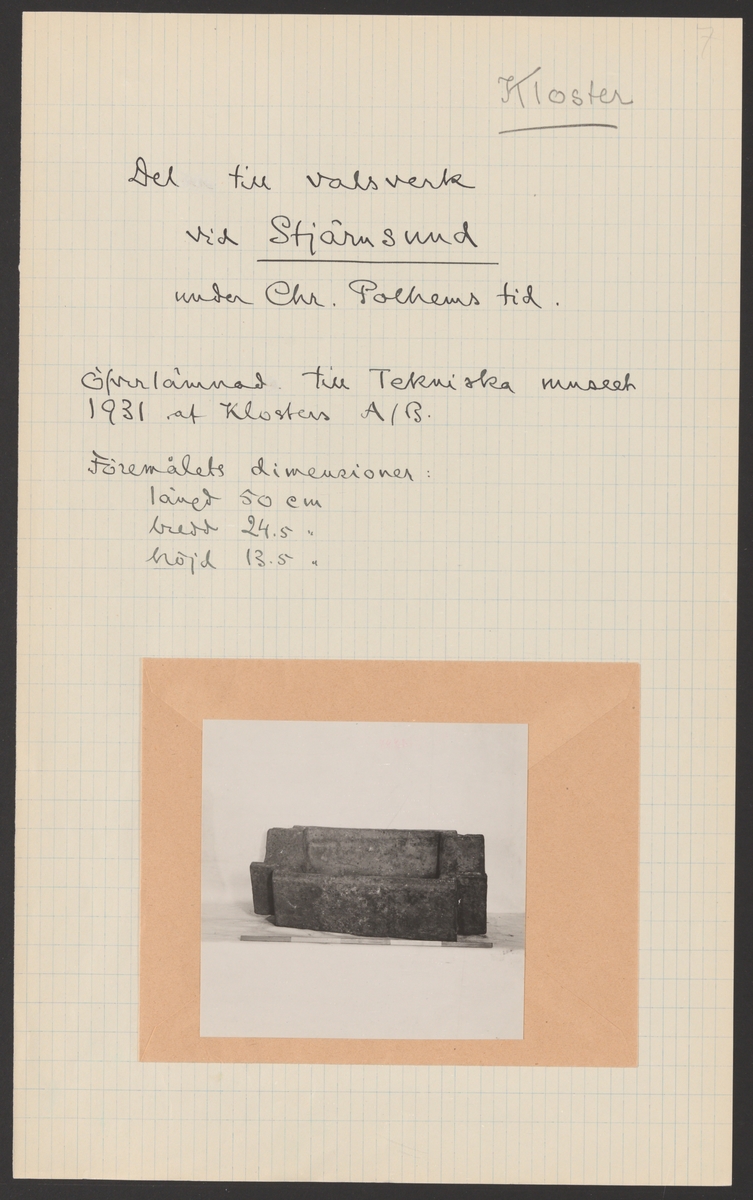 7
Kloster
Del till valsverk
vid Stjärnsund
under Chr. Polhems tid.
Öfverlämnad till Tekniska museet
1931 af Klosters A/B.
Föremålets dimensioner:
längd 50 cm
bredd 24.5 "
höjd 13.5 "